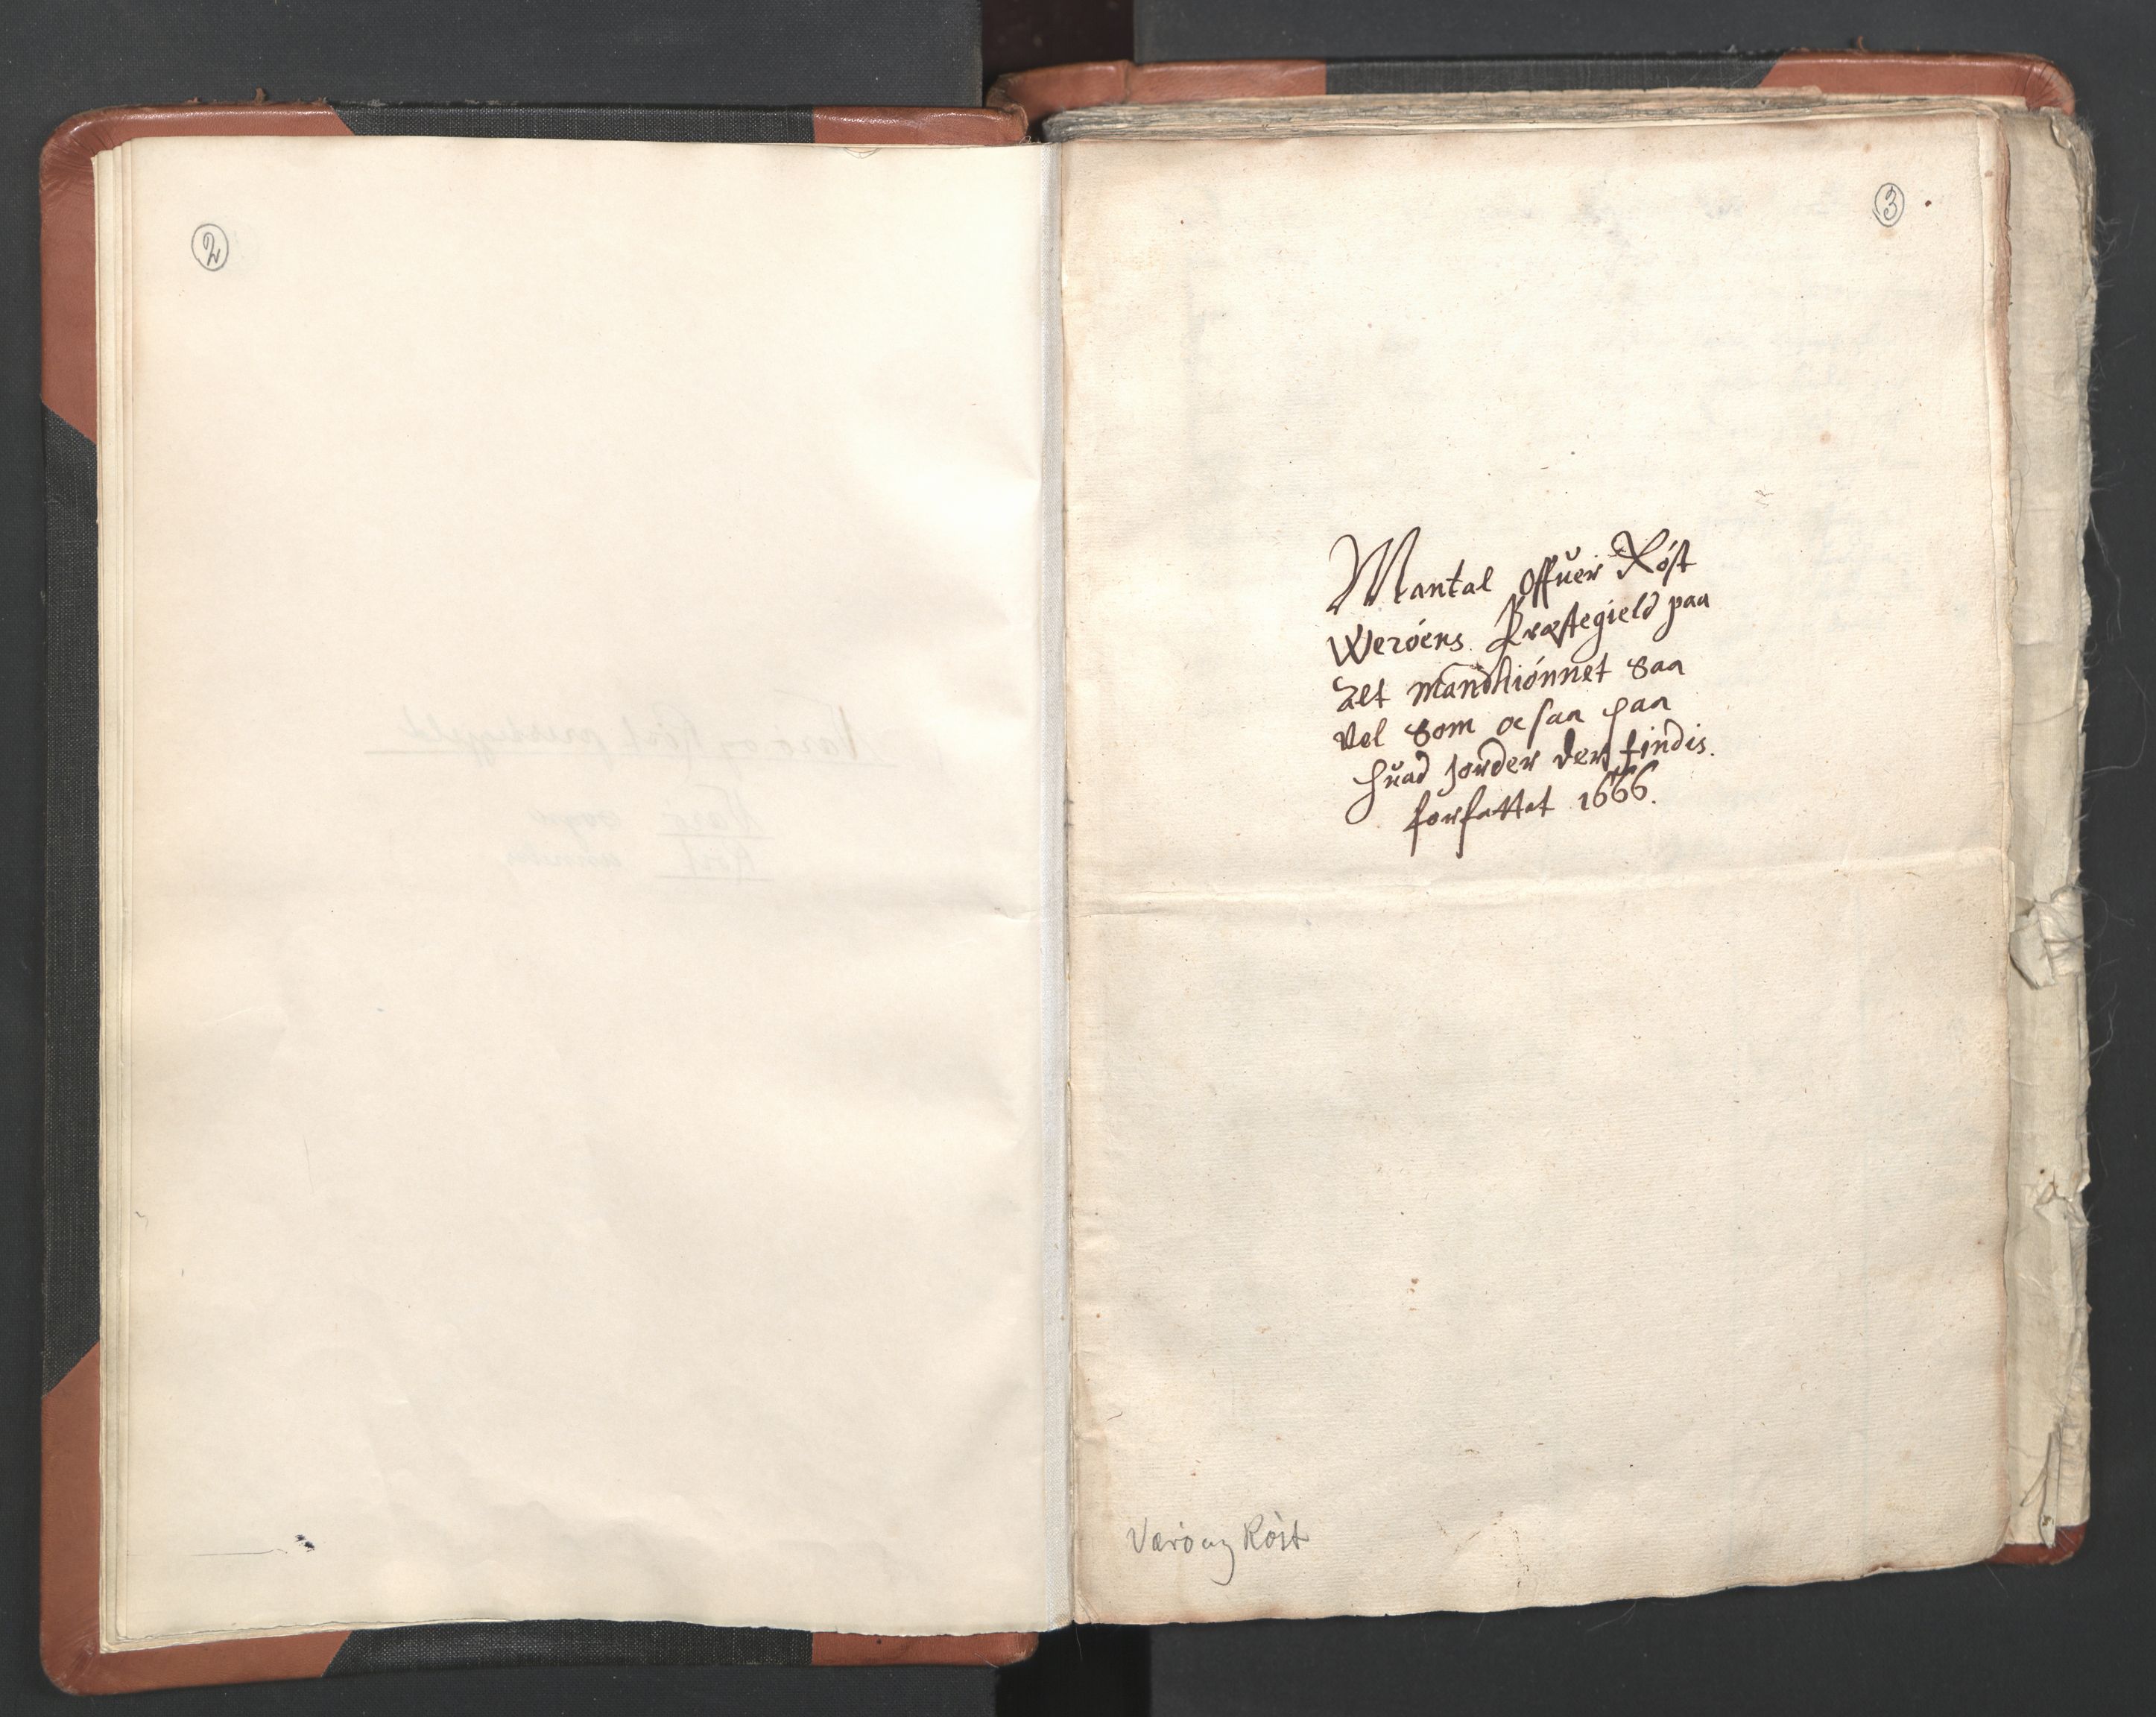 2
3
Mantal offuer Röst
Weröens Præstegield paa
alt mandkiönnet saa
vel som ocsaa paa
huad jorder der findis.
forfattet 1666.
Værö og Röst